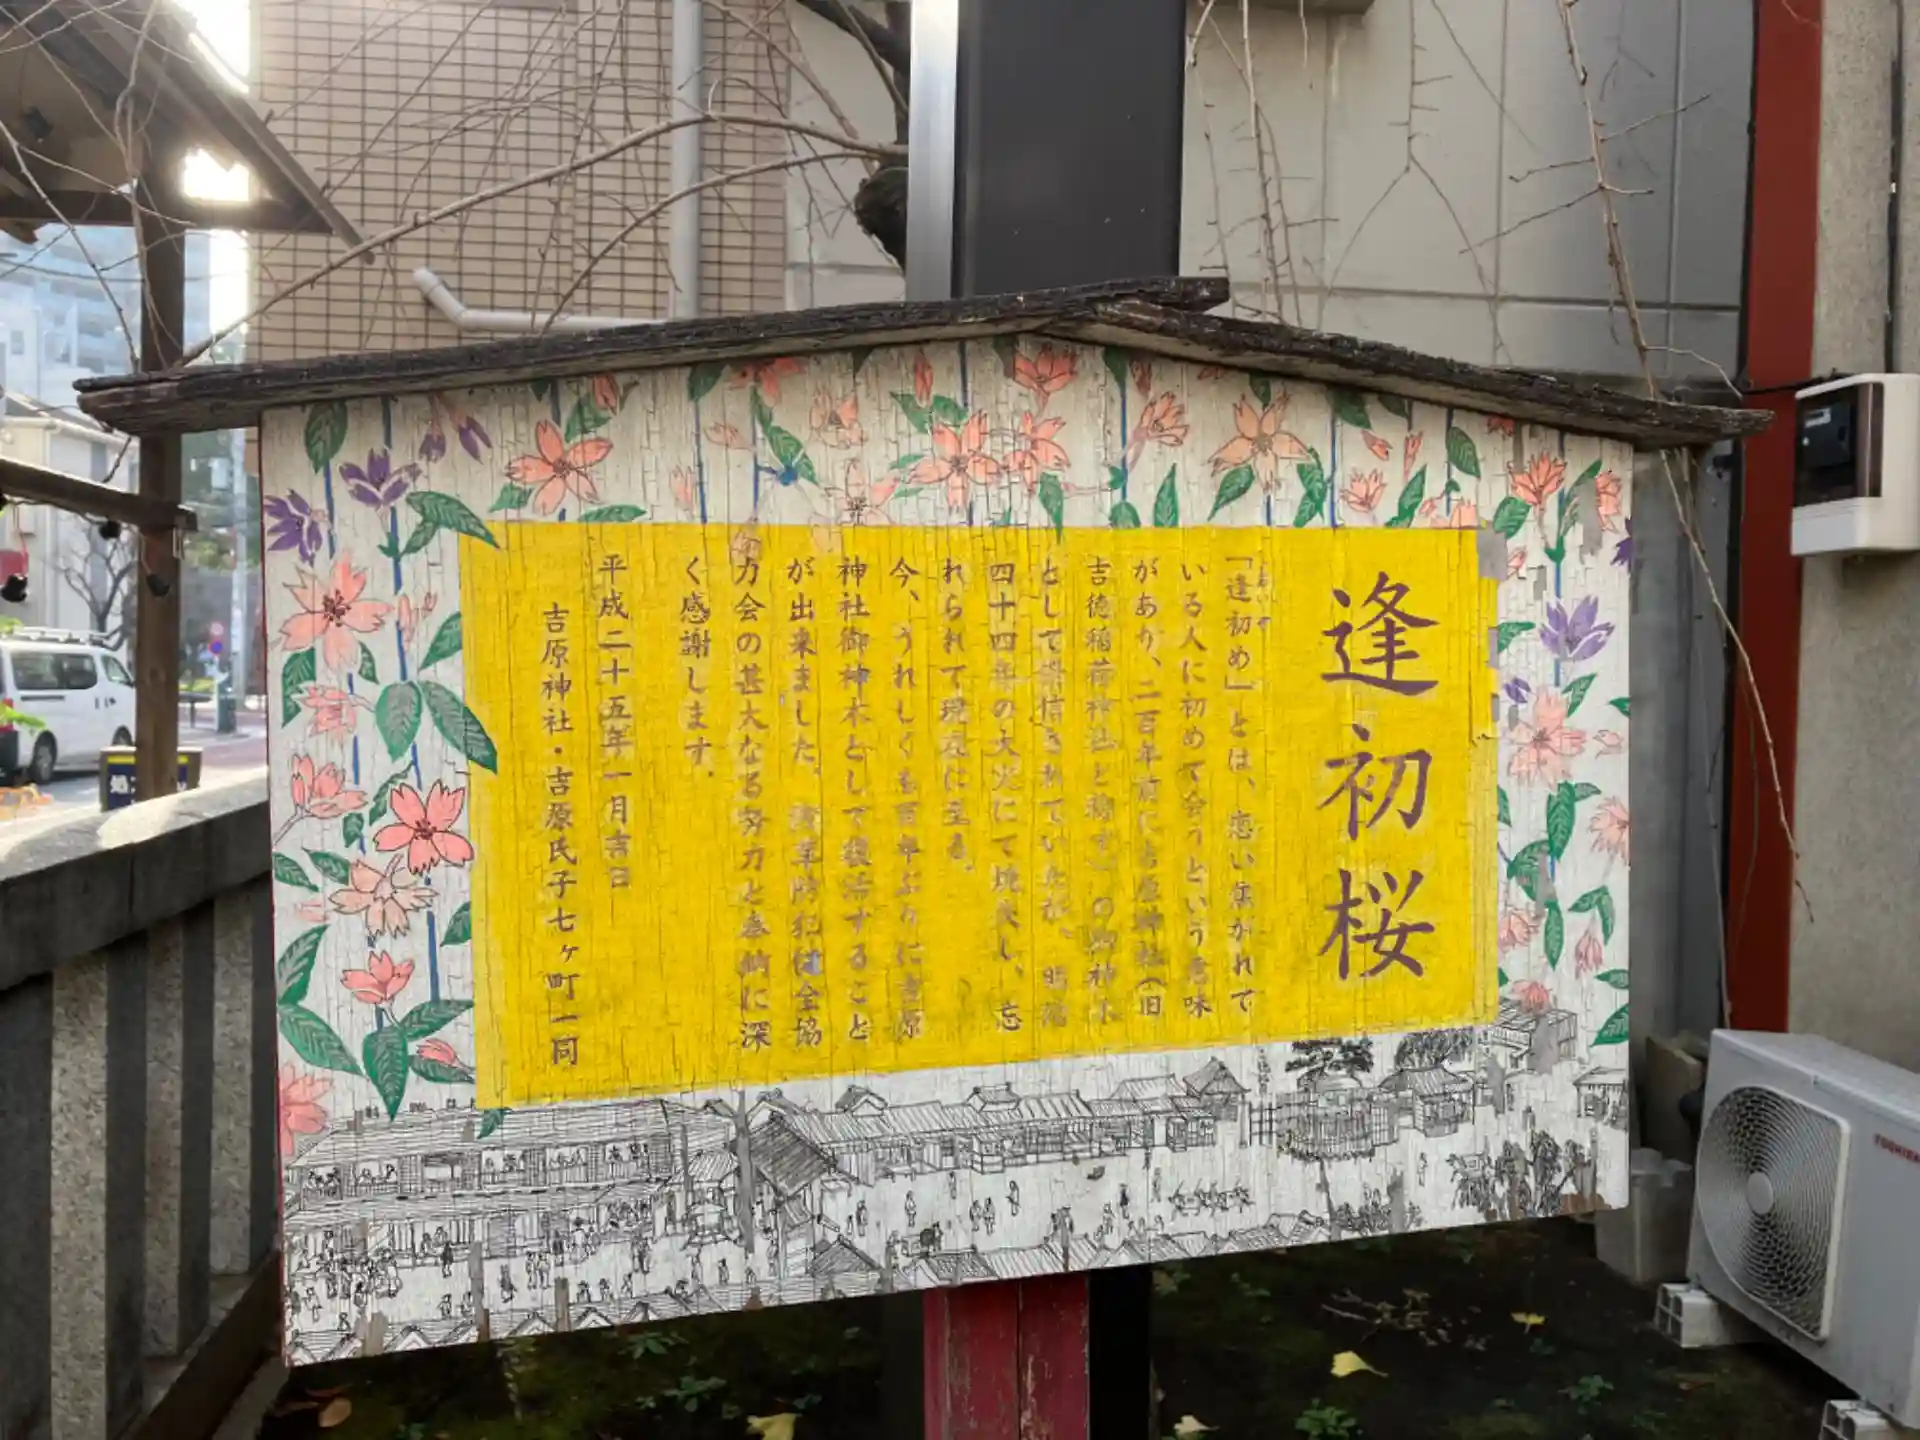 逢初桜
「逢初め」とは、恋い焦がれて
いる人に初めて会うという意味
があり、二百年前に吉原神社(旧
吉徳稲荷神社と称す)の御神木
として崇拝されていたが、明治
四十四年の大火にて焼失し、忘
れられて現在に至る。
今、うれしくも百年ぶりに吉原
神社御神木として復活すること
が出来ました。浅草防犯健全協
力会の甚大なる努力と奉納に深
く感謝します.
平成二十五年一月吉日
吉原神社・吉原氏子七ヶ町一同
TOSHIBA